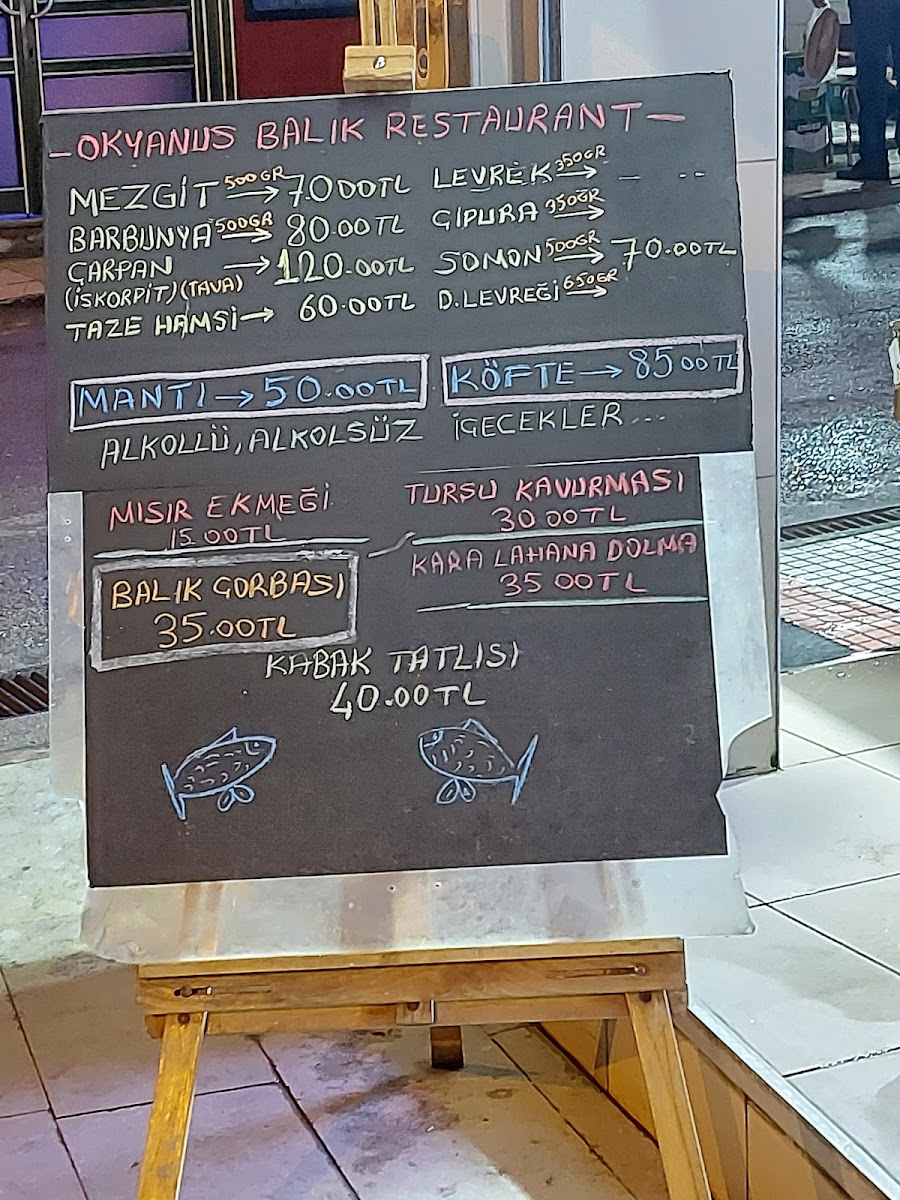 -OKYANUS BALIK RESTAURANT-
MEZGİT 500GR → 70 00TL
BARBUNYA 500GR → 80.00TL
ÇARPAN → 120.00TL
(İSKORPİT) (TAVA)
TAZE HAMSİ → 60.00TL
LEVREK 350GR → - --
ÇİPURA 350GR →
SOMON 500GR → 70.00TL
D.LEVREĞİ 650GR →
MANTI → 50.00TL
KÖFTE → 85 00TL
ALKOLLÜ, ALKOLSÜZ İÇECEKLER...
MISIR EKMEĞİ
15.00TL
TURŞU KAVURMASI
30 00TL
BALIK ÇORBASI
35.00TL
KARA LAHANA DOLMA
35 00TL
KABAK TATLISI
40.00TL